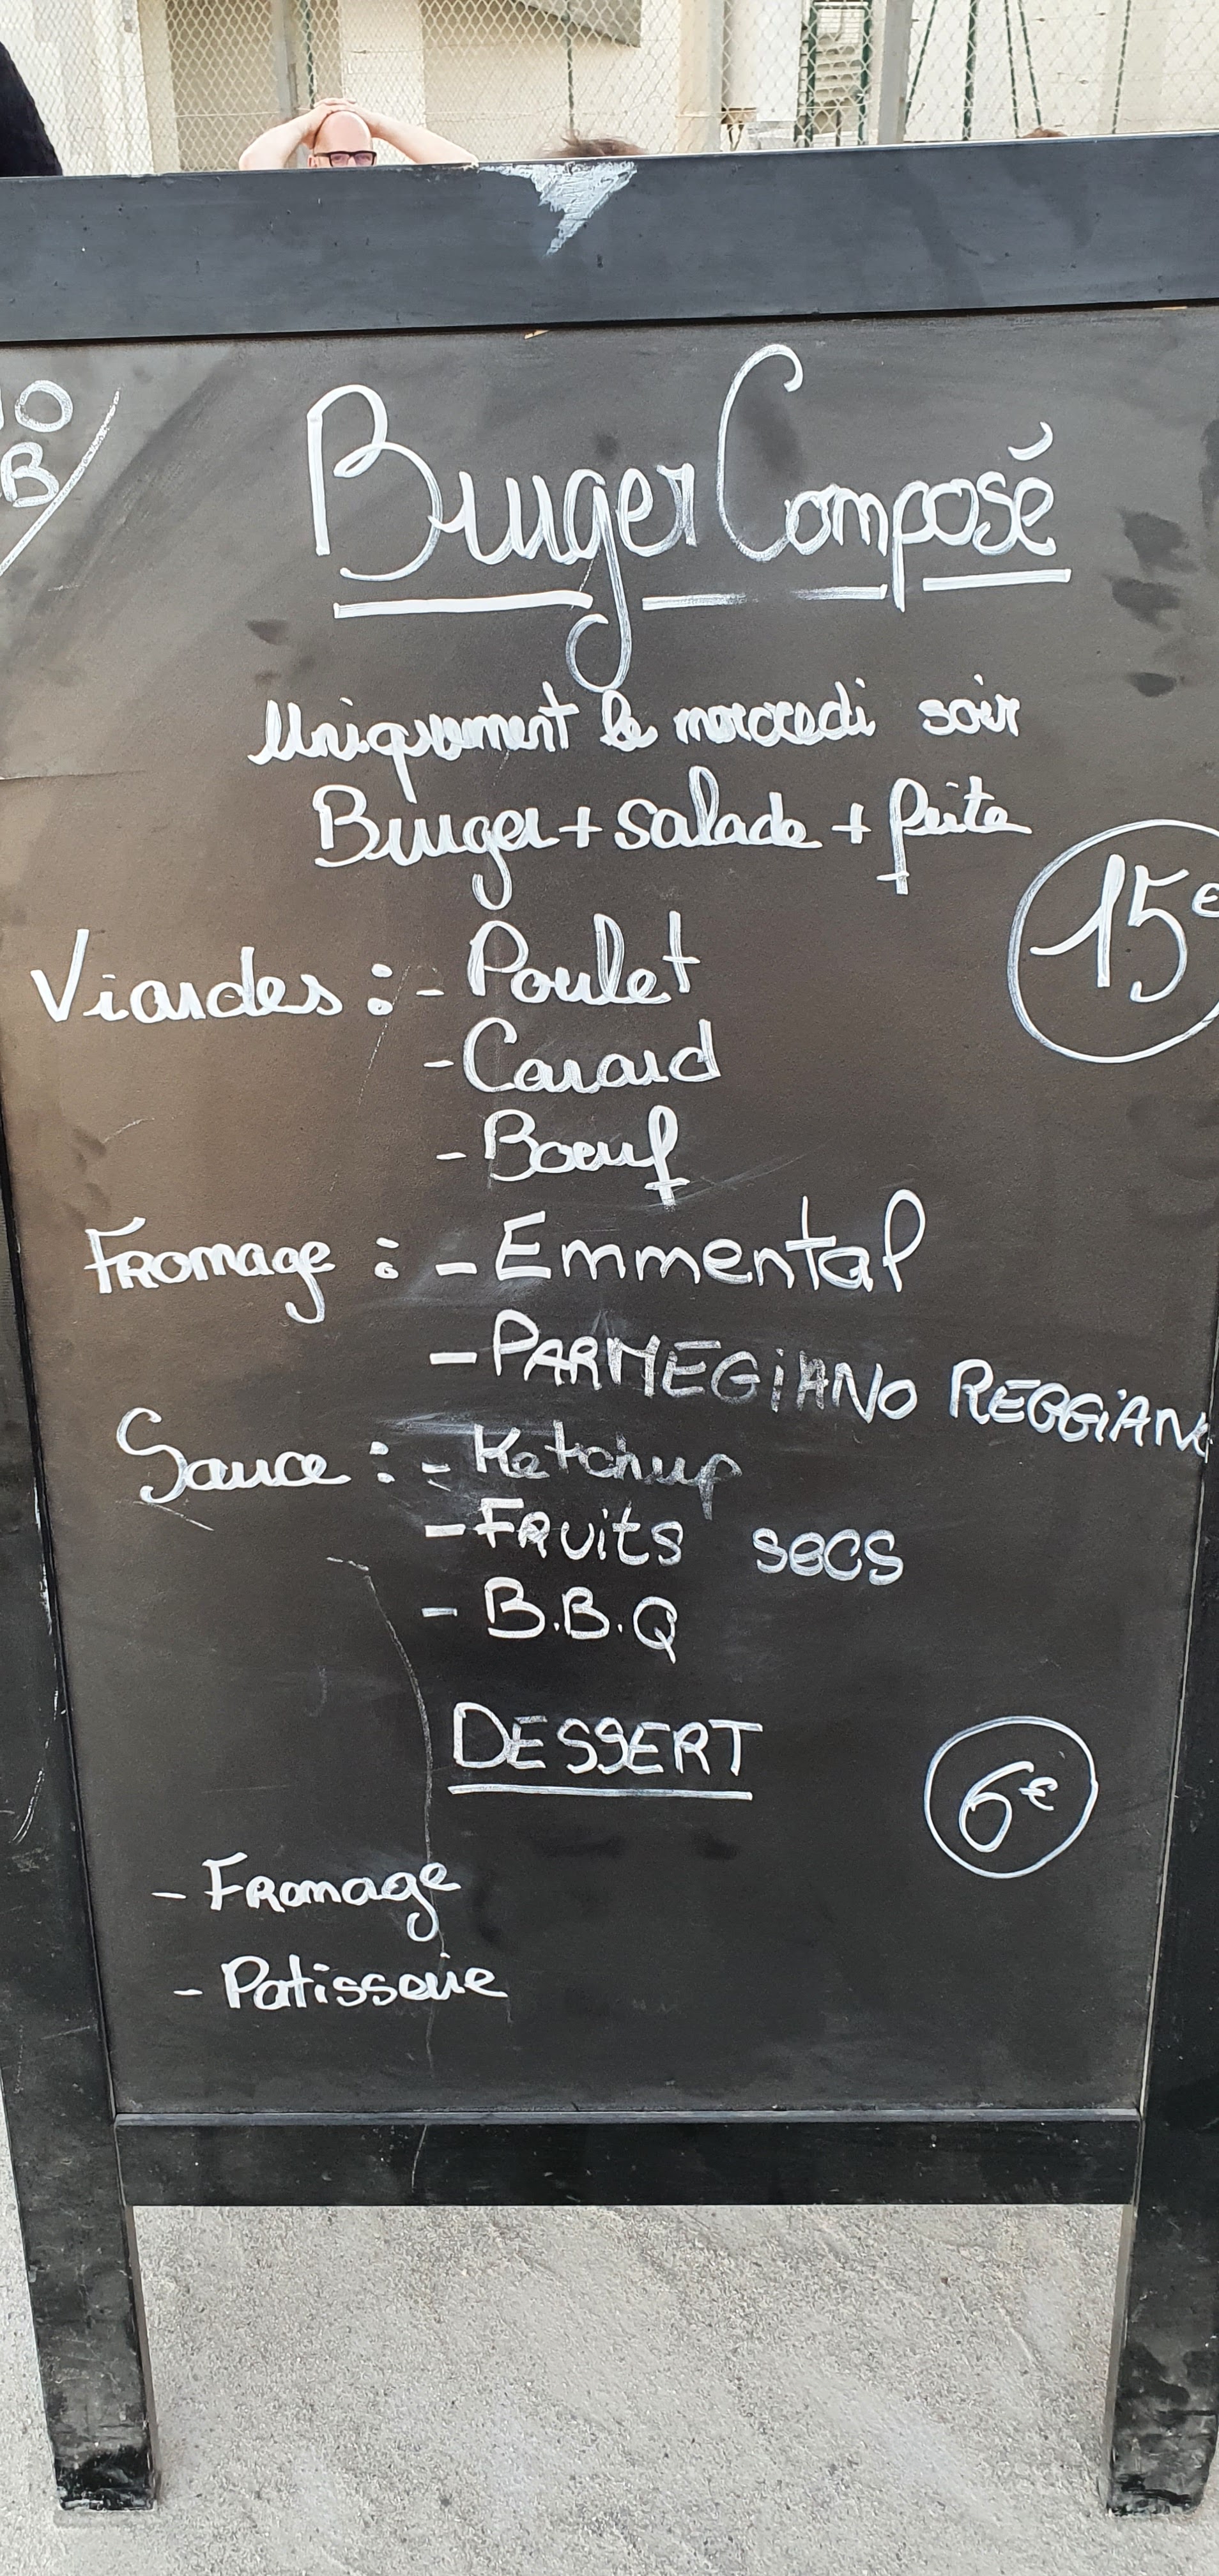 10
B
Burger Composé
Uniquement le mercredi soir
Burger + salade + frite
15€
Viandes : - Poulet
- Canard
- Boeuf
Fromage : - Emmental
- PARMEGIANO REGGIANO
Sauce : - Ketchup
- FRuits secs
- B.B.Q
DESSERT
6€
- Fromage
- Patisserie